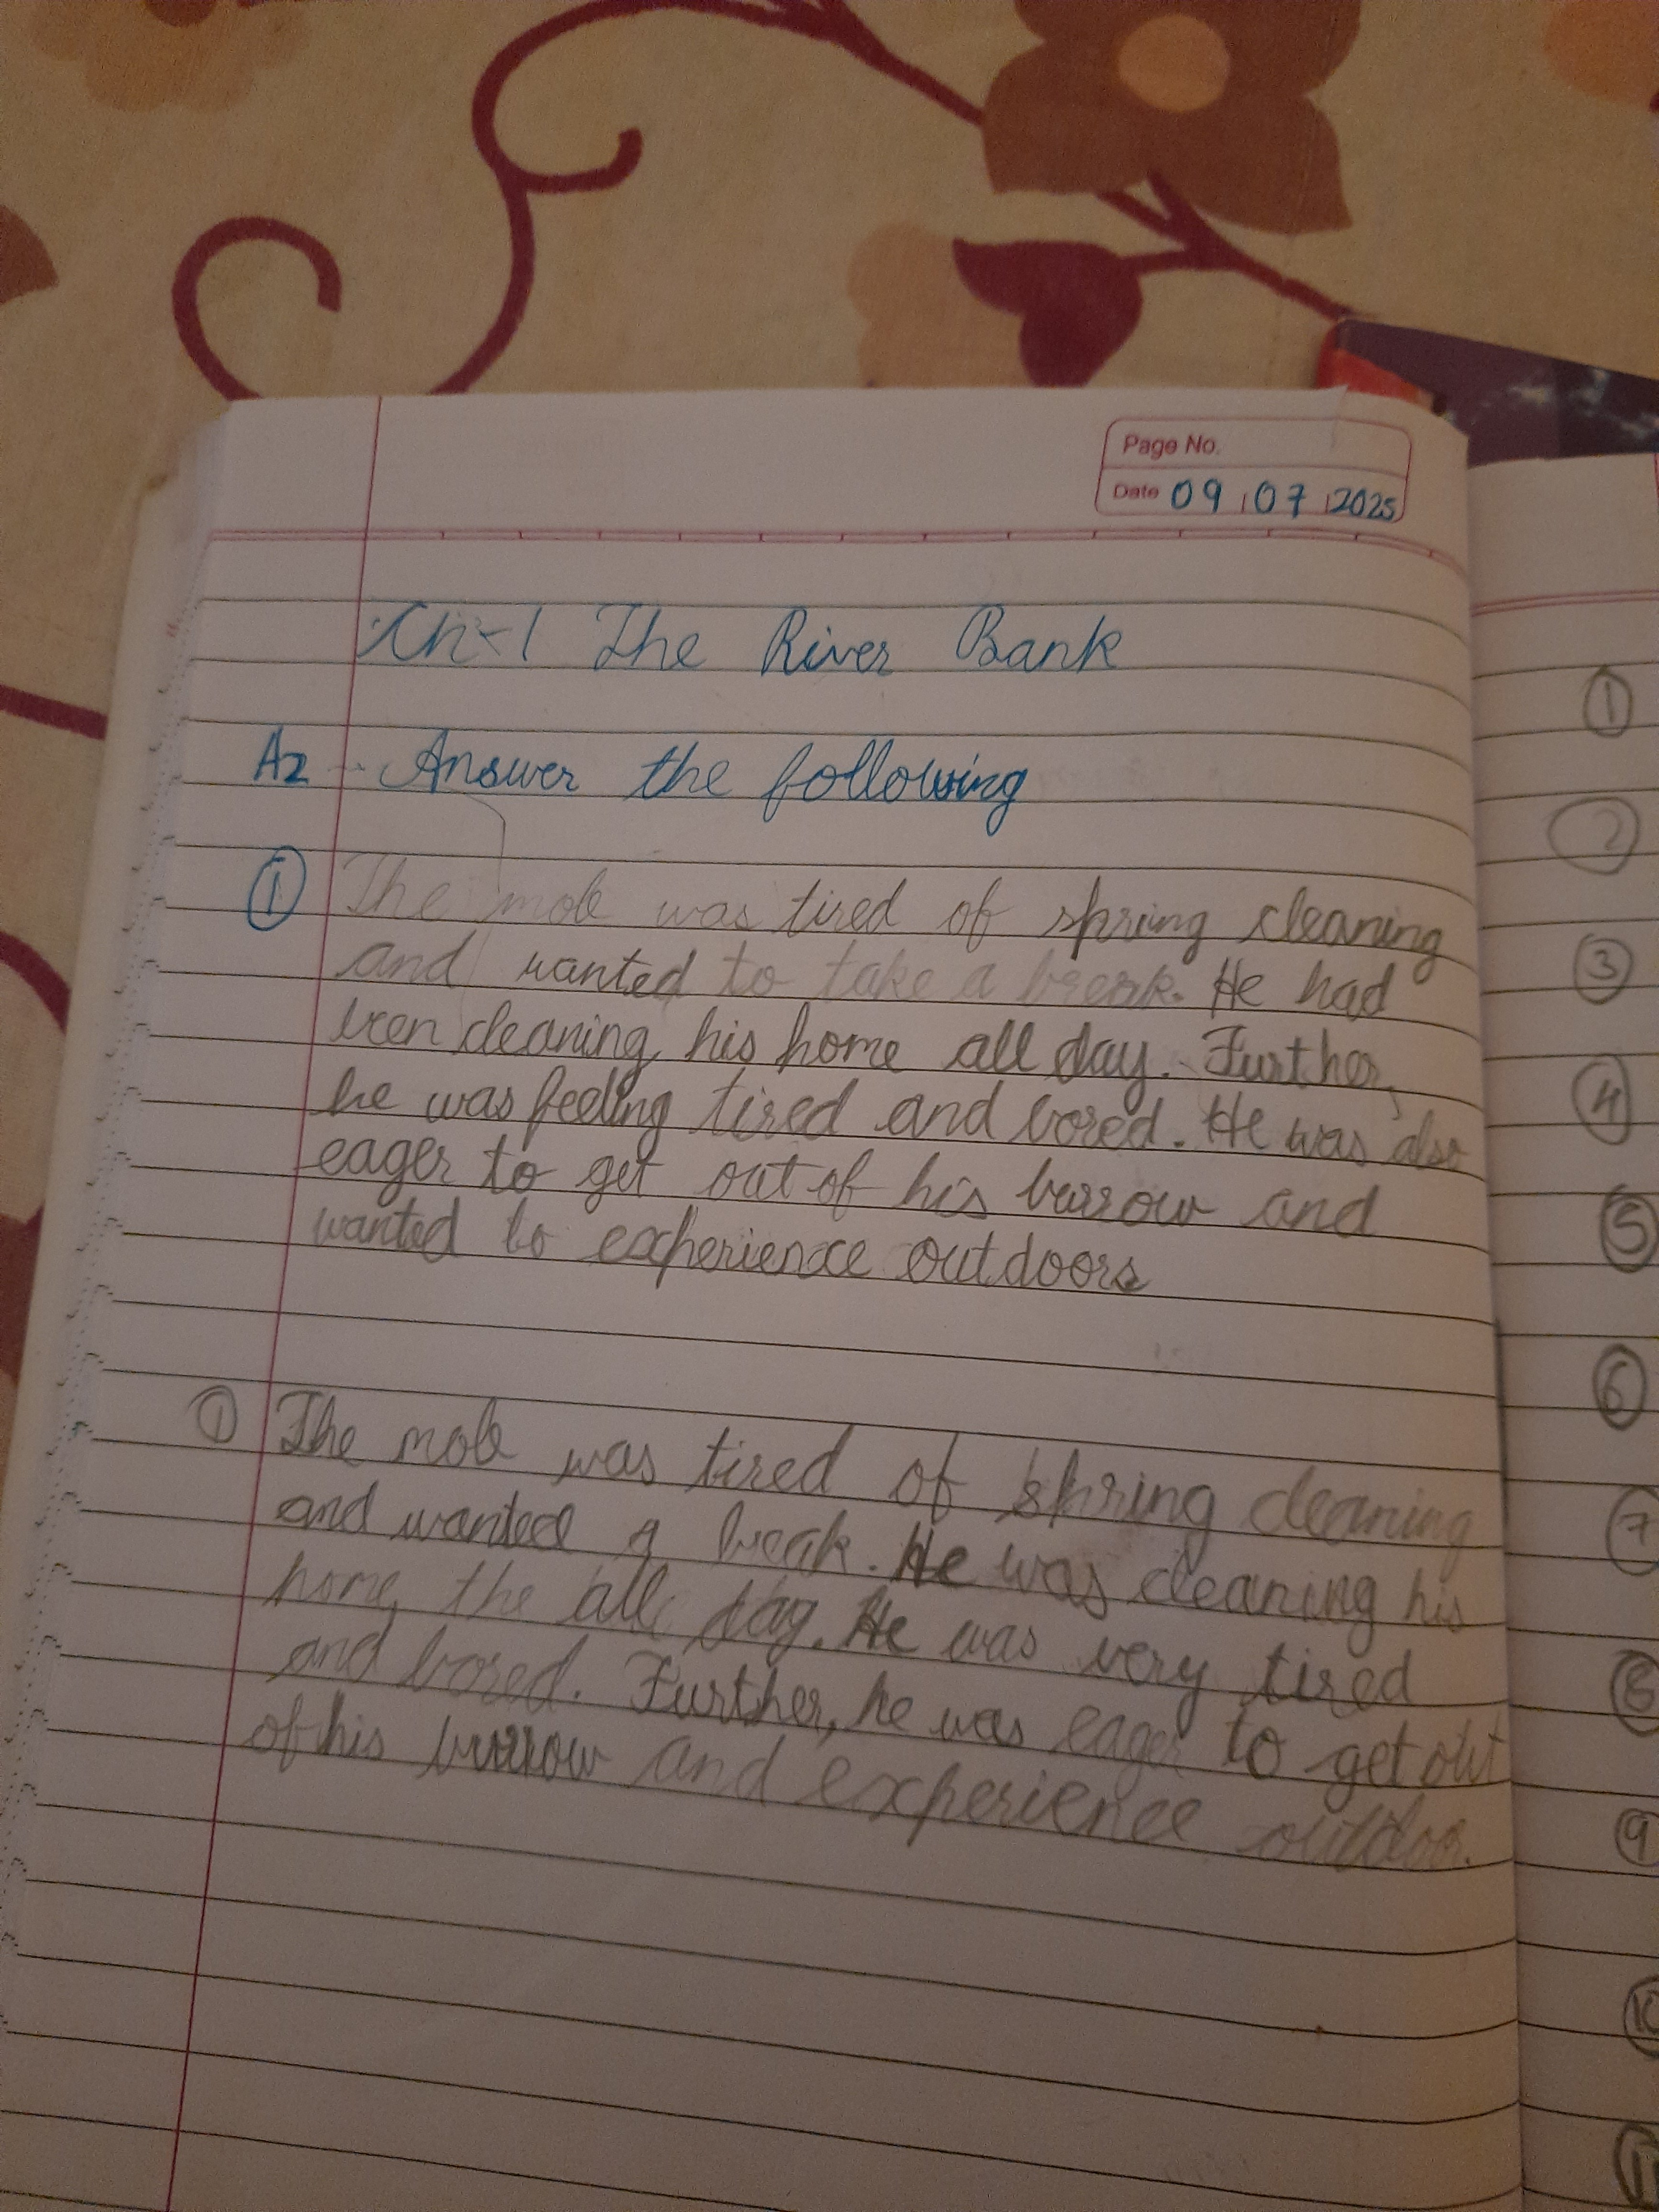 Page No.
Date 09 07 2025
Ch-1 The River Bank
A2 - Answer the following
① The mole was tired of spring cleaning
and wanted to take a break. He had
been cleaning his home all day. Further,
he was feeling tired and bored. He was also
eager to get out of his burrow and
wanted to experience outdoors
① The mole was tired of spring cleaning
and wanted a break. He was cleaning his
home the all day. He was very tired
and bored. Further, he was eager to get out
of his burrow and experience outdoor.
①
②
③
④
⑤
⑥
⑦
⑧
⑨
⑩